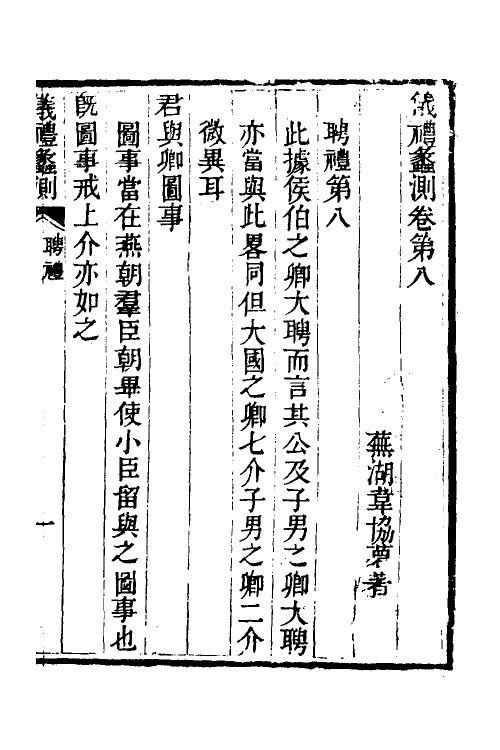 儀禮蠡測卷第八
蕪湖韋協夢著
聘禮第八
此據侯伯之卿大聘而言其公及子男之卿大聘
亦當與此畧同但大國之卿七介子男之卿二介
微異耳
君與卿圖事
圖事當在燕朝羣臣朝畢使小臣留與之圖事也
旣圖事戒上介亦如之
儀禮蠡測
聘禮
一